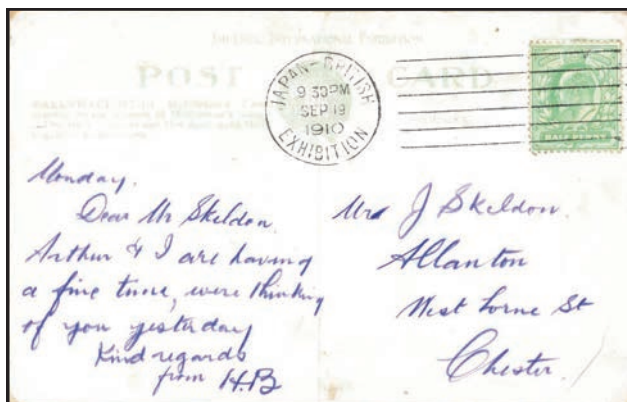 POST CARD
JAPAN-BRITISH
9 30PM
SEP 19
1910
EXHIBITION
Monday.
Dear Mr Skeldon.
Arthur & I are having
a fine time, were thinking
of you yesterday
Kind regards
from H.B
Mrs J Skeldon.
Allanton
West Lorne St
Chester.